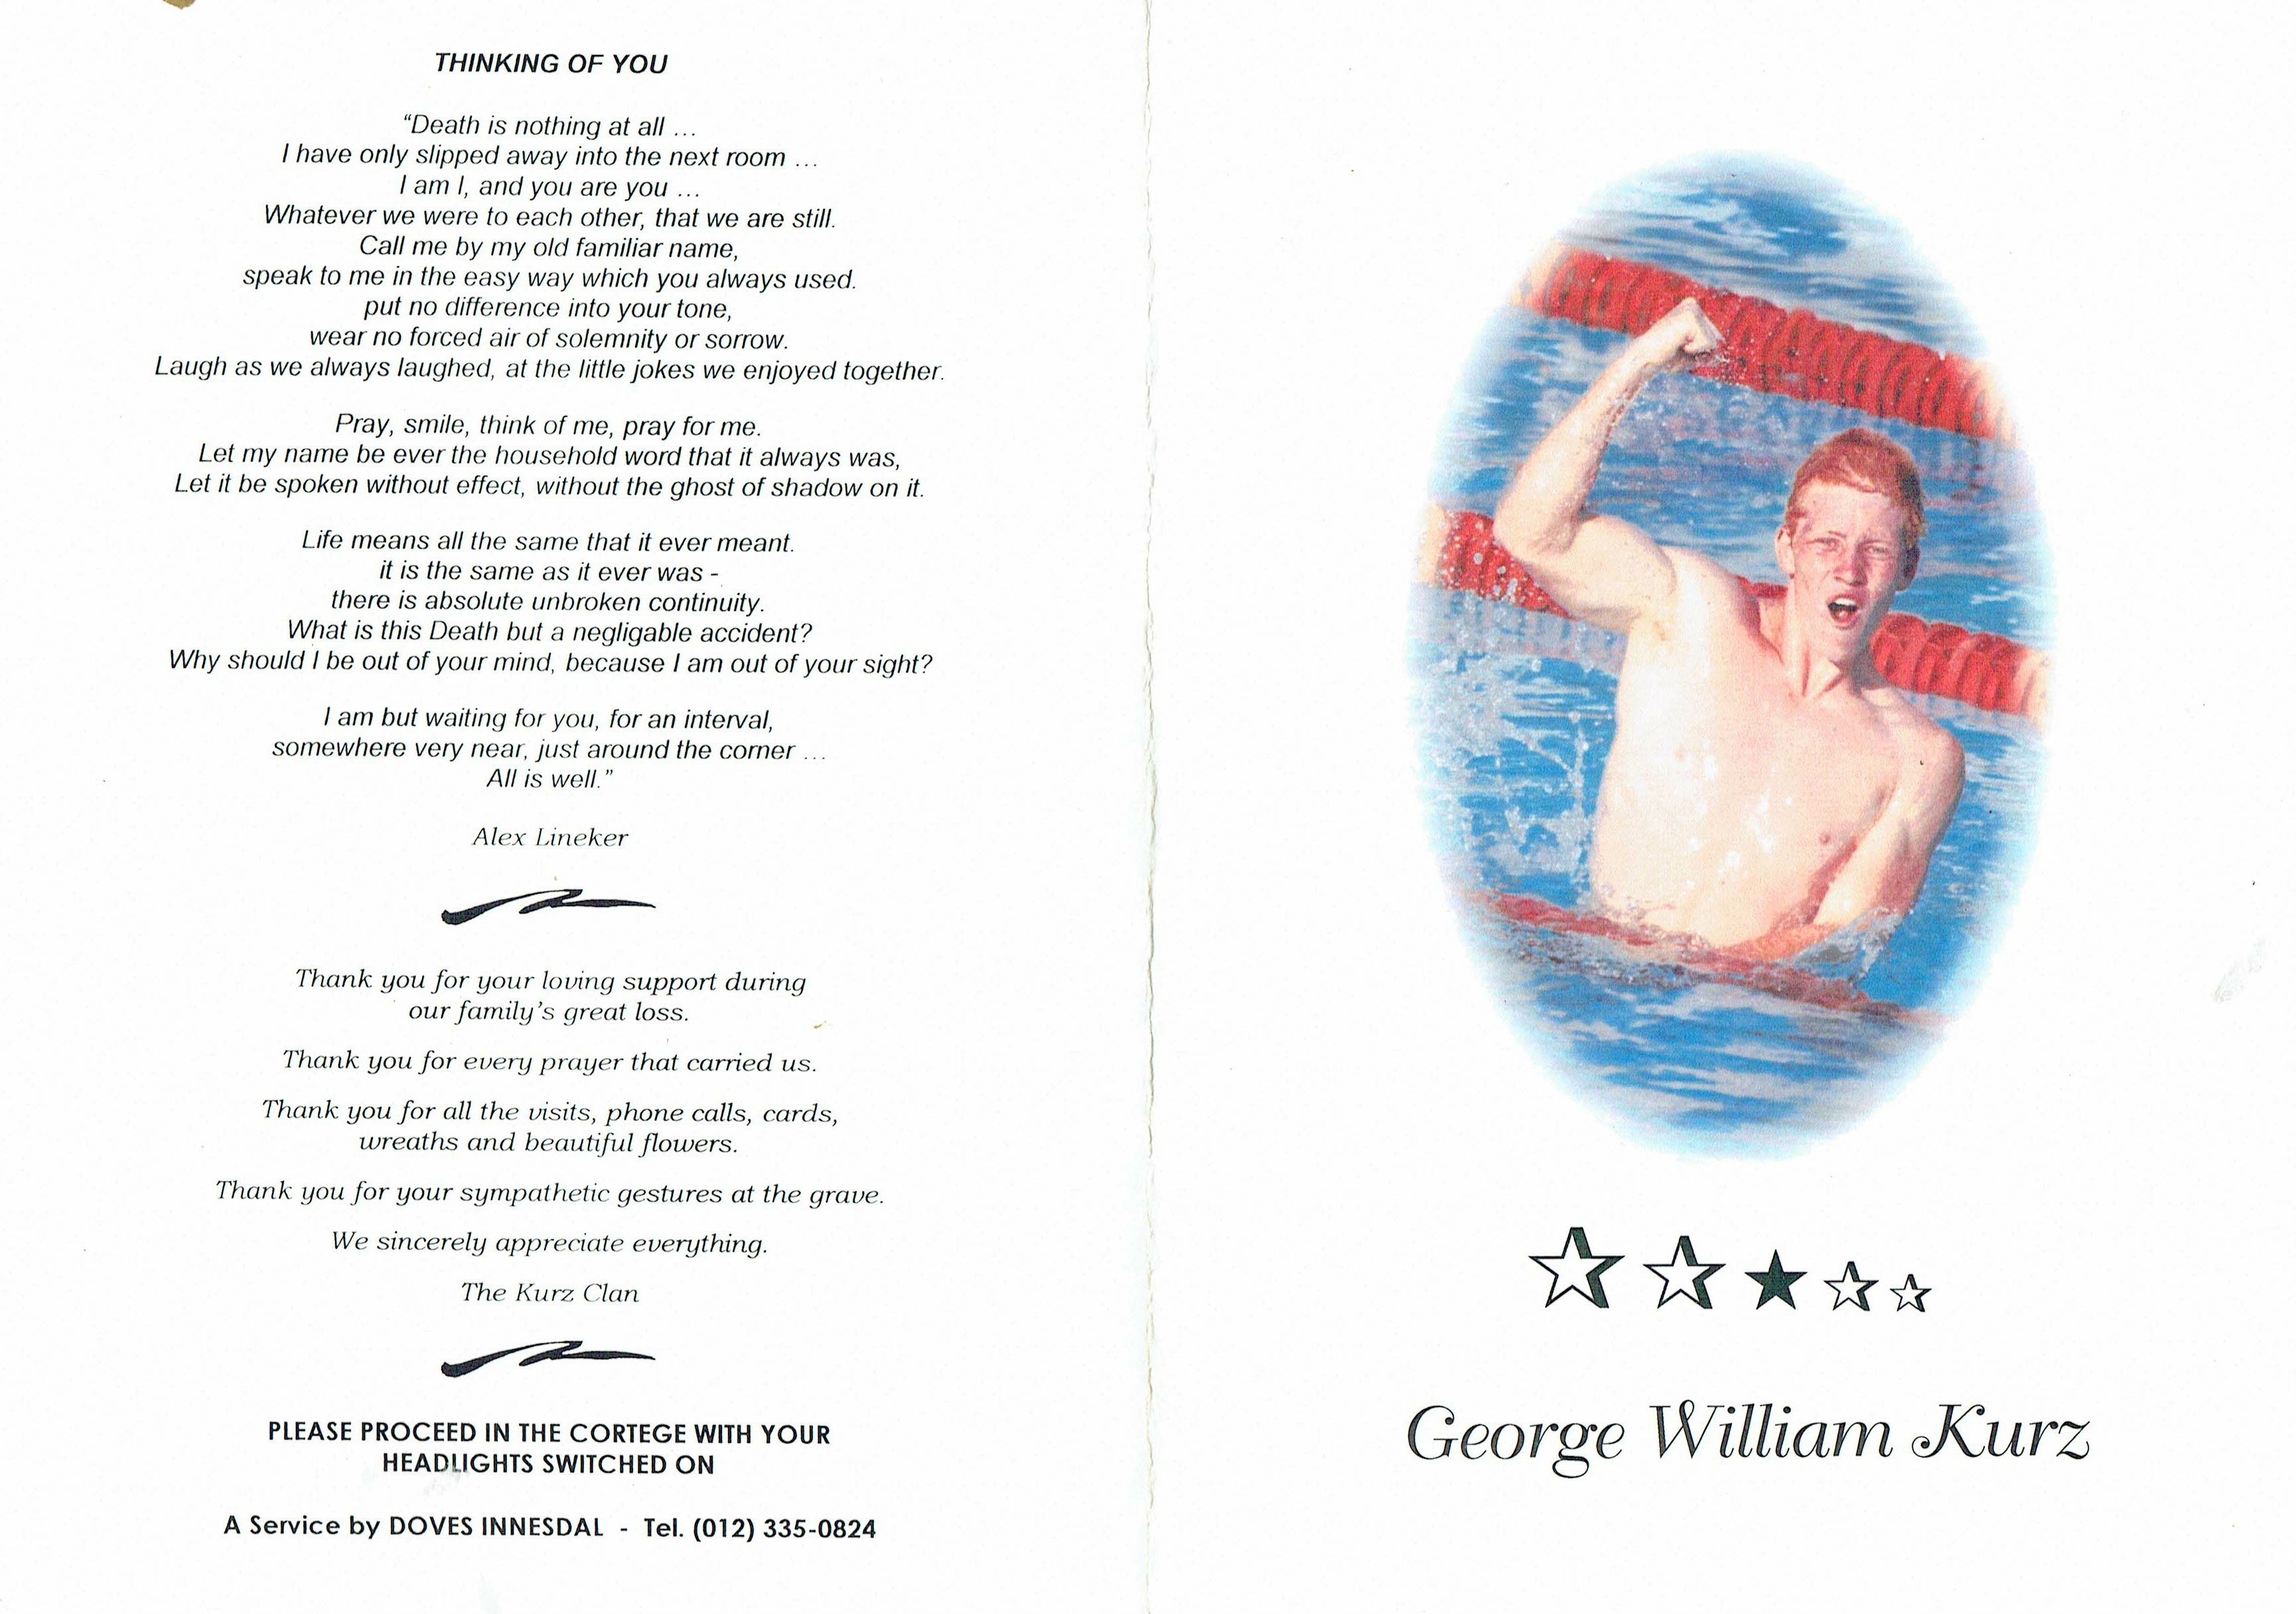 THINKING OF YOU
“Death is nothing at all ...
I have only slipped away into the next room ...
I am I, and you are you ...
Whatever we were to each other, that we are still.
Call me by my old familiar name,
speak to me in the easy way which you always used.
put no difference into your tone,
wear no forced air of solemnity or sorrow.
Laugh as we always laughed, at the little jokes we enjoyed together.
Pray, smile, think of me, pray for me.
Let my name be ever the household word that it always was,
Let it be spoken without effect, without the ghost of shadow on it.
Life means all the same that it ever meant.
it is the same as it ever was -
there is absolute unbroken continuity.
What is this Death but a negligable accident?
Why should I be out of your mind, because I am out of your sight?
I am but waiting for you, for an interval,
somewhere very near, just around the corner ...
All is well.”
Alex Lineker
Thank you for your loving support during
our family’s great loss.
Thank you for every prayer that carried us.
Thank you for all the visits, phone calls, cards,
wreaths and beautiful flowers.
Thank you for your sympathetic gestures at the grave.
We sincerely appreciate everything.
The Kurz Clan
PLEASE PROCEED IN THE CORTEGE WITH YOUR
HEADLIGHTS SWITCHED ON
A Service by DOVES INNESDAL - Tel. (012) 335-0824
George William Kurz